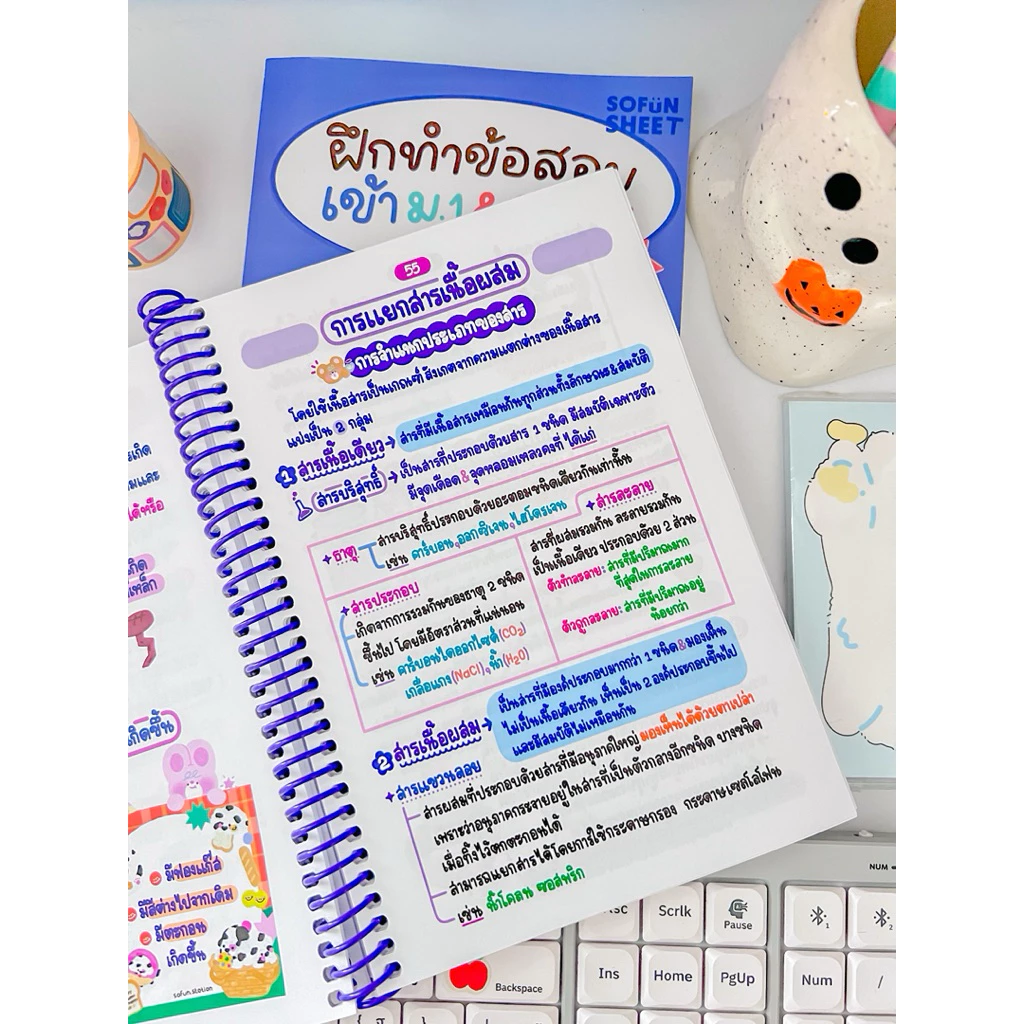 SOFUN
SHEET
ฝึกทำข้อสอบ
เข้า ม.1
55
การแยกสารเนื้อผสม
การจำแนกประเภทของสาร
โดยใช้เนื้อสารเป็นเกณฑ์ สังเกตจากความแตกต่างของเนื้อสาร
แบ่งเป็น 2 กลุ่ม
1 สารเนื้อเดียว → สารที่มีเนื้อสารเหมือนกันทุกส่วนทั้งลักษณะ&สมบัติ
สารบริสุทธิ์ → เป็นสารที่ประกอบด้วยสาร 1 ชนิด มีสมบัติเฉพาะตัว
มีจุดเดือด&จุดหลอมเหลวคงที่ ได้แก่
ธาตุ
สารบริสุทธิ์ประกอบด้วยอะตอมชนิดเดียวกันเท่านั้น
เช่น คาร์บอน,ออกซิเจน,ไฮโดรเจน
สารประกอบ
เกิดจากการรวมกันของธาตุ 2 ชนิด
ขึ้นไป โดยมีอัตราส่วนที่แน่นอน
เช่น คาร์บอนไดออกไซด์(CO2)
เกลือแกง(NaCl),น้ำ(H2O)
สารละลาย
สารที่ผสมรวมกัน ละลายรวมกัน
เป็นเนื้อเดียว ประกอบด้วย 2 ส่วน
ตัวทำละลาย: สารที่มีปริมาณมาก
ที่สุดในการละลาย
ตัวถูกละลาย: สารที่มีปริมาณอยู่
น้อยกว่า
2 สารเนื้อผสม → เป็นสารที่มีองค์ประกอบมากกว่า 1 ชนิด&มองเห็น
ไม่เป็นเนื้อเดียวกัน เห็นเป็น 2 องค์ประกอบขึ้นไป
และมีสมบัติไม่เหมือนกัน
สารแขวนลอย
สารผสมที่ประกอบด้วยสารที่มีอนุภาคใหญ่ มองเห็นได้ด้วยตาเปล่า
เพราะว่าอนุภาคกระจายอยู่ในสารที่เป็นตัวกลางอีกชนิด บางชนิด
เมื่อทิ้งไว้ตกตะกอนได้
สามารถแยกสารได้โดยการใช้กระดาษกรอง กระดาษเซลโลเฟน
เช่น น้ำโคลน ซอสพริก
ได้หรือ
เกิดขึ้น
มีฟองแก๊ส
มีสีต่างไปจากเดิม
มีตะกอน
เกิดขึ้น
sofun.station
NUM
Scrlk
Pause
1
2
Backspace
Ins
Home
PgUp
Num
/